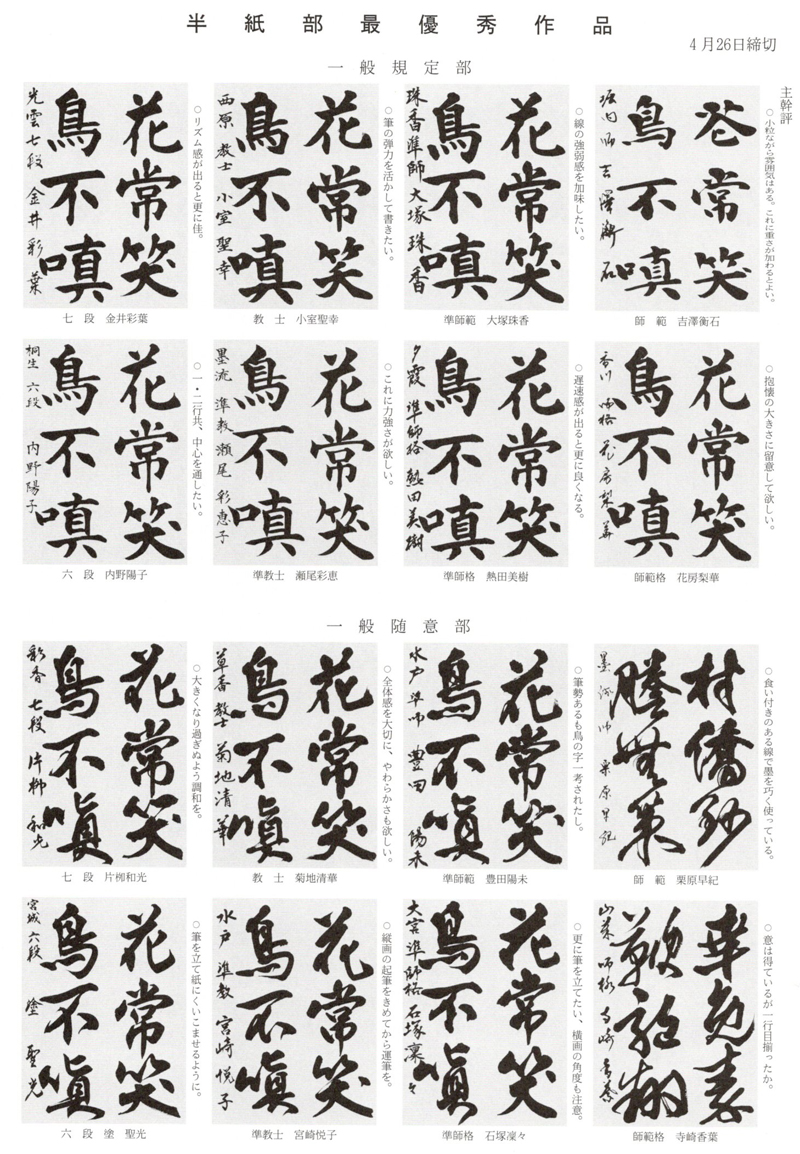 半紙部最優秀作品
4月26日締切
一般規定部
主幹評
○小粒ながら雰囲気はある。これに重さが加わるとよい。
花常笑
鳥不嗔
師範 吉澤衡石
○線の強弱感を加味したい。
花常笑
鳥不嗔
珠香準師大塚珠香
準師範 大塚珠香
○筆の弾力を活かして書きたい。
花常笑
鳥不嗔
西原 教士 小室聖幸
教士 小室聖幸
○リズム感が出ると更に佳。
花常笑
鳥不嗔
光雲七段 金井彩葉
七段 金井彩葉
○抱懐の大きさに留意して欲しい。
花常笑
鳥不嗔
香川 師格 花房梨華
師範格 花房梨華
○遅速感が出ると更に良くなる。
花常笑
鳥不嗔
夕霞 準師格 熱田美樹
準師格 熱田美樹
○これに力強さが欲しい。
花常笑
鳥不嗔
墨流 準教 瀬尾彩恵子
準教士 瀬尾彩恵
○一・二行共、中心を通したい。
花常笑
鳥不嗔
桐生 六段 内野陽子
六段 内野陽子
一般随意部
○食い付きのある線で墨を巧く使っている。
師範 栗原早紀
○筆勢あるも鳥の字一考されたし。
花常笑
鳥不嗔
水戸 準師 豊田陽未
準師範 豊田陽未
○全体感を大切に、やわらかさも欲しい。
花常笑
鳥不嗔
草香 教士 菊地清華
教士 菊地清華
○大きくなり過ぎぬよう調和を。
花常笑
鳥不嗔
彩香 七段 片栁和光
七段 片栁和光
○意は得ているが一行目揃ったか。
師範格 寺崎香葉
○更に筆を立てたい、横画の角度も注意。
花常笑
鳥不嗔
大宮 準師格 石塚凜々
準師格 石塚凜々
○縦画の起筆をきめてから運筆を。
花常笑
鳥不嗔
水戸 準教 宮崎悦子
準教士 宮崎悦子
○筆を立て紙にくいこませるように。
花常笑
鳥不嗔
宮城 六段 塗 聖光
六段 塗 聖光